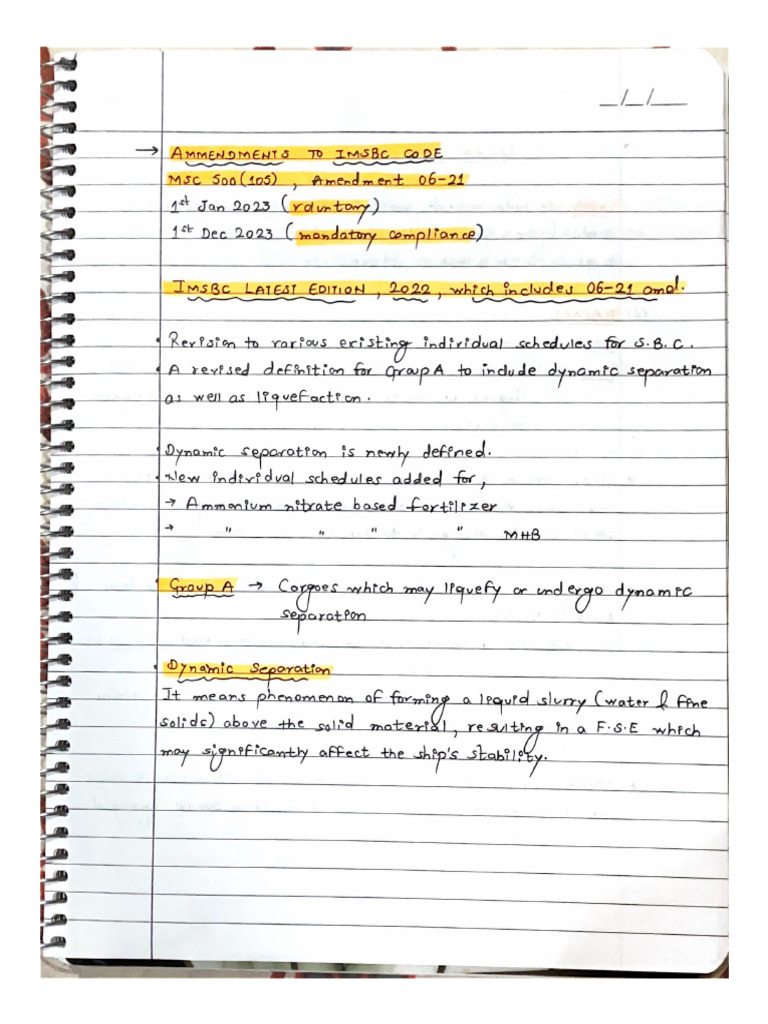 _/_/__
→ AMMENDMENTS TO IMSBC CODE
MSC 500(105), Amendment 06-21
1st Jan 2023 (voluntary)
1st Dec 2023 (mandatory compliance)
IMSBC LATEST EDITION, 2022, which includes 06-21 amd.
• Revision to various existing individual schedules for S.B.C.
• A revised definition for Group A to include dynamic separation
as well as liquefaction.
• Dynamic separation is newly defined.
• New individual schedules added for,
→ Ammonium nitrate based fertilizer
→ " " " " MHB
• Group A → Cargoes which may liquefy or undergo dynamic
separation
• Dynamic Separation
It means phenomenon of forming a liquid slurry (water & fine
solids) above the solid material, resulting in a F.S.E which
may significantly affect the ship's stability.